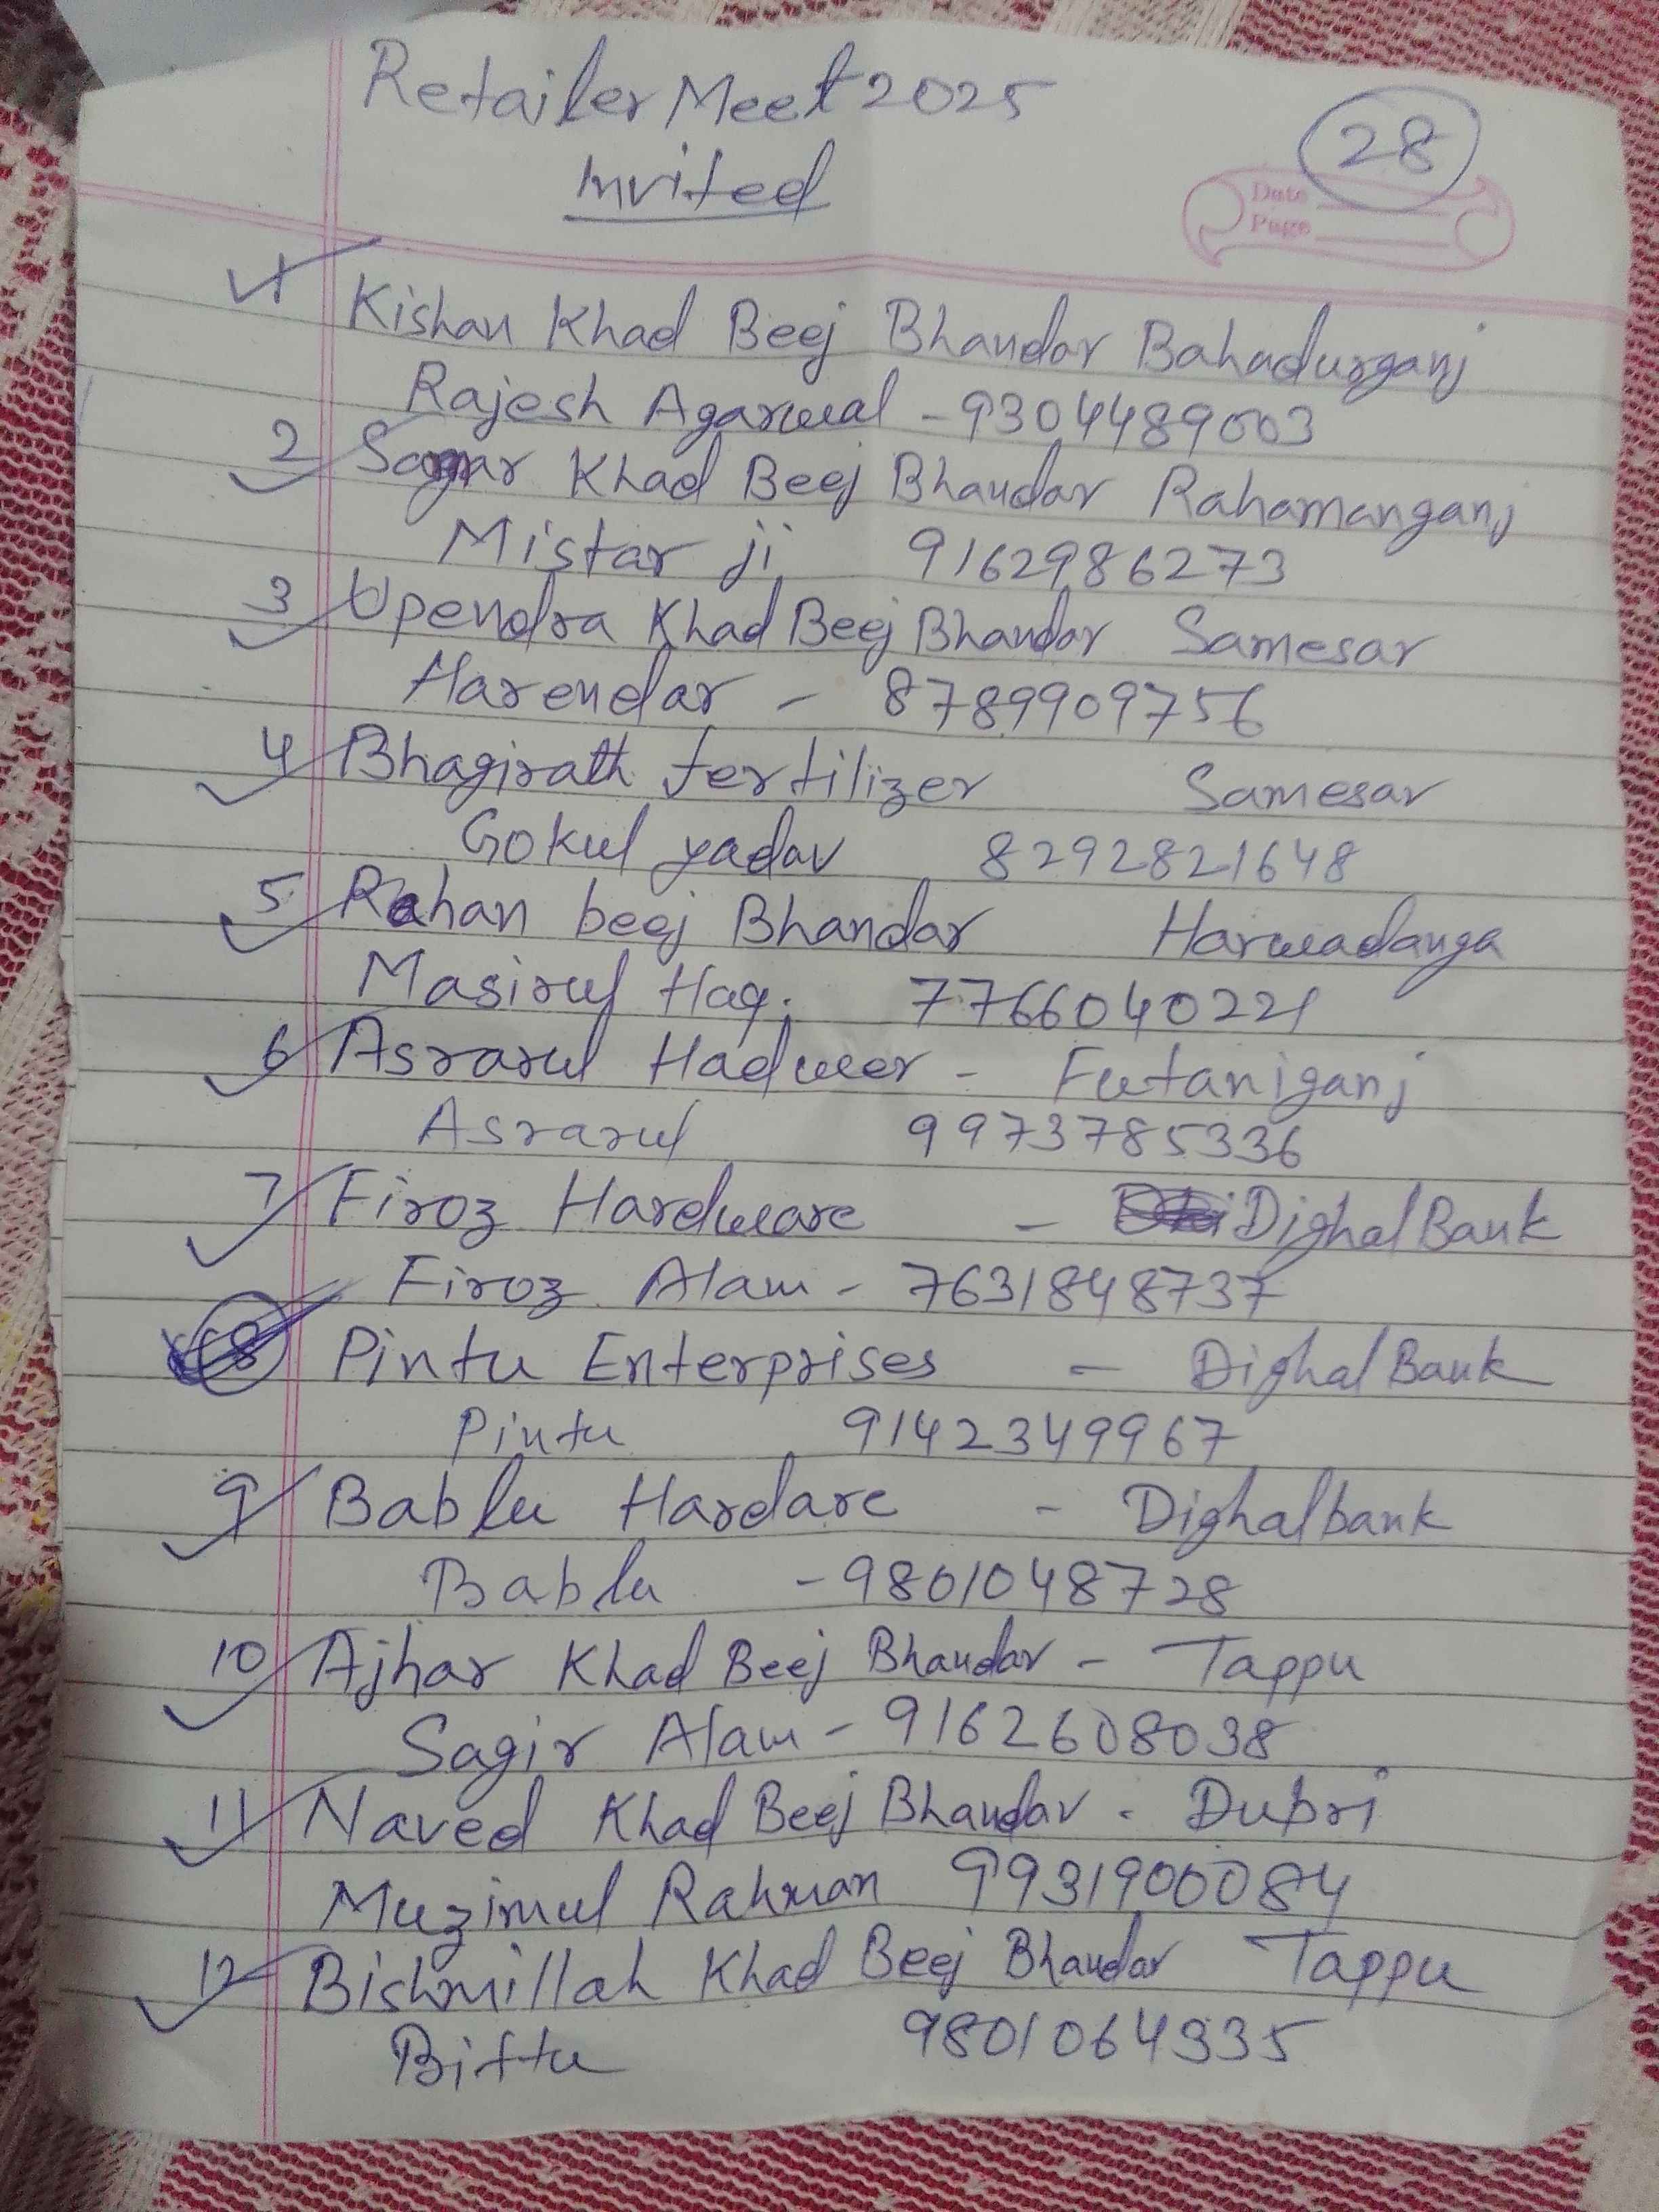 Retailer Meet 2025
28
Invited
Date
Page
1 Kishan Khad Beej Bhandar Bahadurganj
Rajesh Agarwal - 9304489003
2 Sagar Khad Beej Bhandar Rahamanganj
Mistar ji 9162986273
3 Upendra Khad Beej Bhandar Samesar
Harendar - 8789909756
4 Bhagirath fertilizer Samesar
Gokul yadav 8292821648
5. Rahan beej Bhandar Harwadanga
Masirul Haq. 7766040221
6 Asrarul Hadweer - Futaniganj
Asrarul 9973785336
7 Firoz Hardware - Dighal Bank
Firoz Alam - 7631848737
8 Pintu Enterprises - Dighal Bank
Pintu 9142349967
9 Bablu Hardare - Dighalbank
Bablu - 9801048728
10 Ajhar Khad Beej Bhandar - Tappu
Sagir Alam - 9162608038
11 Naved Khad Beej Bhandar - Dubri
Muzimul Rahman 9931900084
12 Bishmillah Khad Beej Bhandar Tappu
Bittu 9801064935